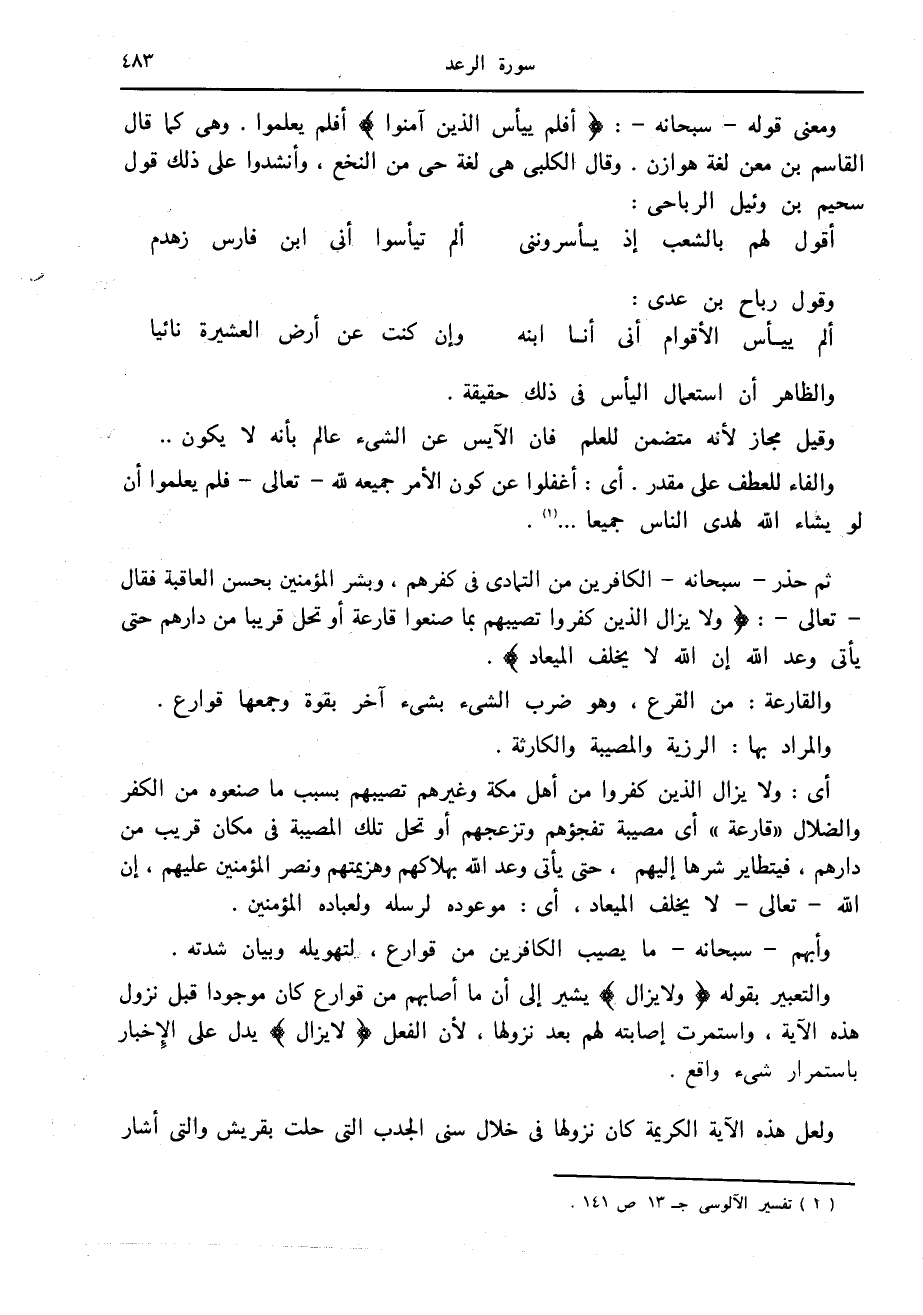 سورة الرعد ٤٨٣
ومعنى قوله - سبحانه - : ﴿ أفلم ييأس الذين آمنوا ﴾ أفلم يعلموا . وهى كما قال
القاسم بن معن لغة هوازن . وقال الكلبى هى لغة حى من النخع ، وأنشدوا على ذلك قول
سحيم بن وئيل الرباحى :
أقول لهم بالشعب إذ يـأسروننى ألم تيأسوا أنى ابن فارس زهدم
وقول رباح بن عدى :
ألم ييـأس الأقوام أنى أنـا ابنه وإن كنت عن أرض العشيرة نائيا
والظاهر أن استعمال اليأس فى ذلك حقيقة .
وقيل مجاز لأنه متضمن للعلم فان الآيس عن الشىء عالم بأنه لا يكون ..
والفاء للعطف على مقدر . أى : أغفلوا عن كون الأمر جميعه لله - تعالى - فلم يعلموا أن
لو يشاء الله لهدى الناس جميعا ...(١) .
ثم حذر - سبحانه - الكافرين من التمادى فى كفرهم ، وبشر المؤمنين بحسن العاقبة فقال
- تعالى - : ﴿ ولا يزال الذين كفروا تصيبهم بما صنعوا قارعة أو تحل قريبا من دارهم حتى
يأتى وعد الله إن الله لا يخلف الميعاد ﴾ .
والقارعة : من القرع ، وهو ضرب الشىء بشىء آخر بقوة وجمعها قوارع .
والمراد بها : الرزية والمصيبة والكارثة .
أى : ولا يزال الذين كفروا من أهل مكة وغيرهم تصيبهم بسبب ما صنعوه من الكفر
والضلال «قارعة » أى مصيبة تفجؤهم وتزعجهم أو تحل تلك المصيبة فى مكان قريب من
دارهم ، فيتطاير شرها إليهم ، حتى يأتى وعد الله بهلاكهم وهزيمتهم ونصر المؤمنين عليهم ، إن
الله - تعالى - لا يخلف الميعاد ، أى : موعوده لرسله ولعباده المؤمنين .
وأبهم - سبحانه - ما يصيب الكافرين من قوارع ، لتهويله وبيان شدته .
والتعبير بقوله ﴿ ولايزال ﴾ يشير إلى أن ما أصابهم من قوارع كان موجودا قبل نزول
هذه الآية ، واستمرت إصابته لهم بعد نزولها ، لأن الفعل ﴿ لايزال ﴾ يدل على الإخبار
باستمرار شىء واقع .
ولعل هذه الآية الكريمة كان نزولها فى خلال سنى الجدب التى حلت بقريش والتى أشار
( ٢ ) تفسير الآلوسى جـ ١٣ ص ١٤١ .